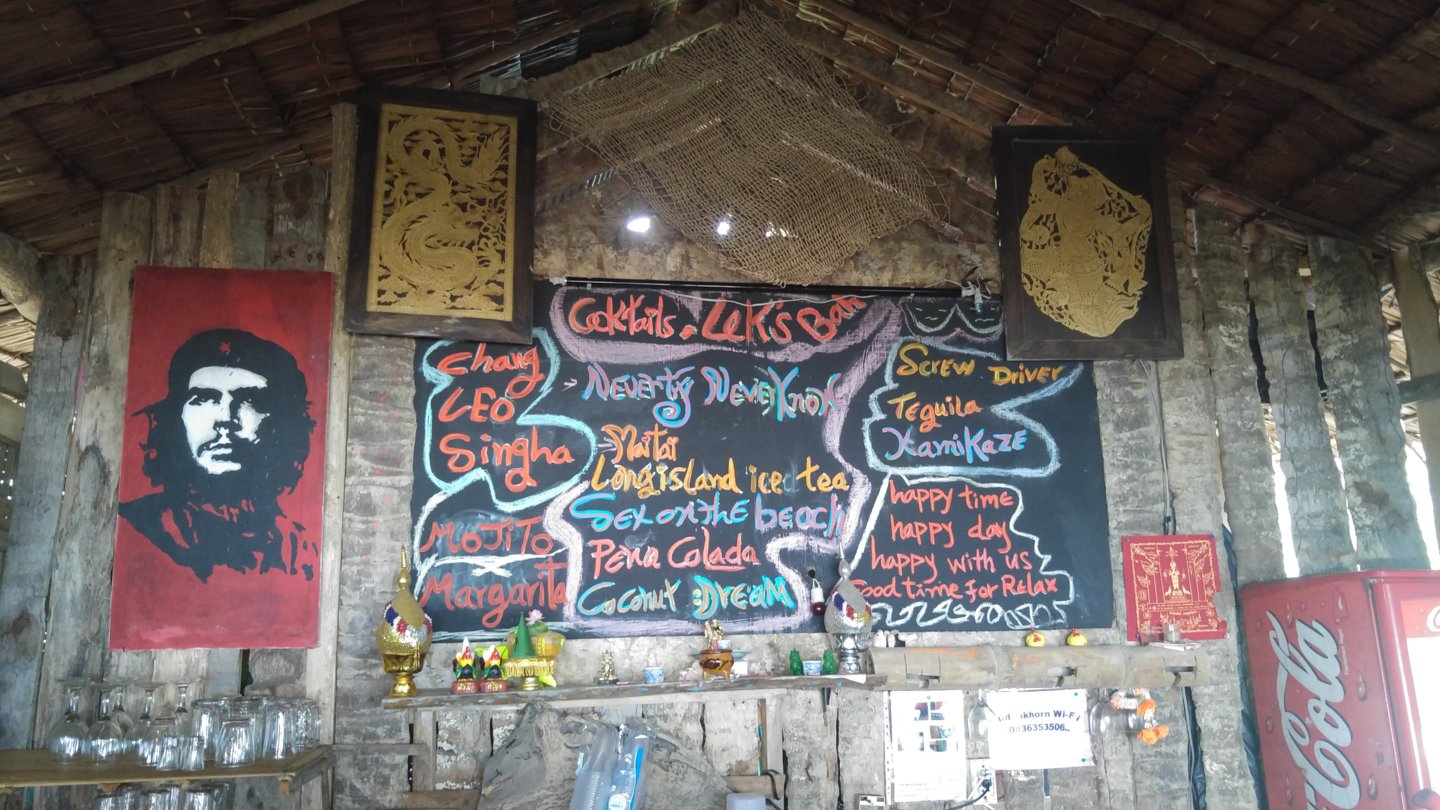 Cocktails. Lek's Bar
Chang
LEO
Singha
MoJiTo
Margarita
Neverty NeverKnow
Maitai
Long island ice tea
Sex on the beach
Pena Colada
Coconut DREAM
SCREW DRIVER
Tequila
KamiKaze
happy time
happy day
happy with us
Good time for Relax
khorn Wi-Fi
0836353506..
Coca-Cola